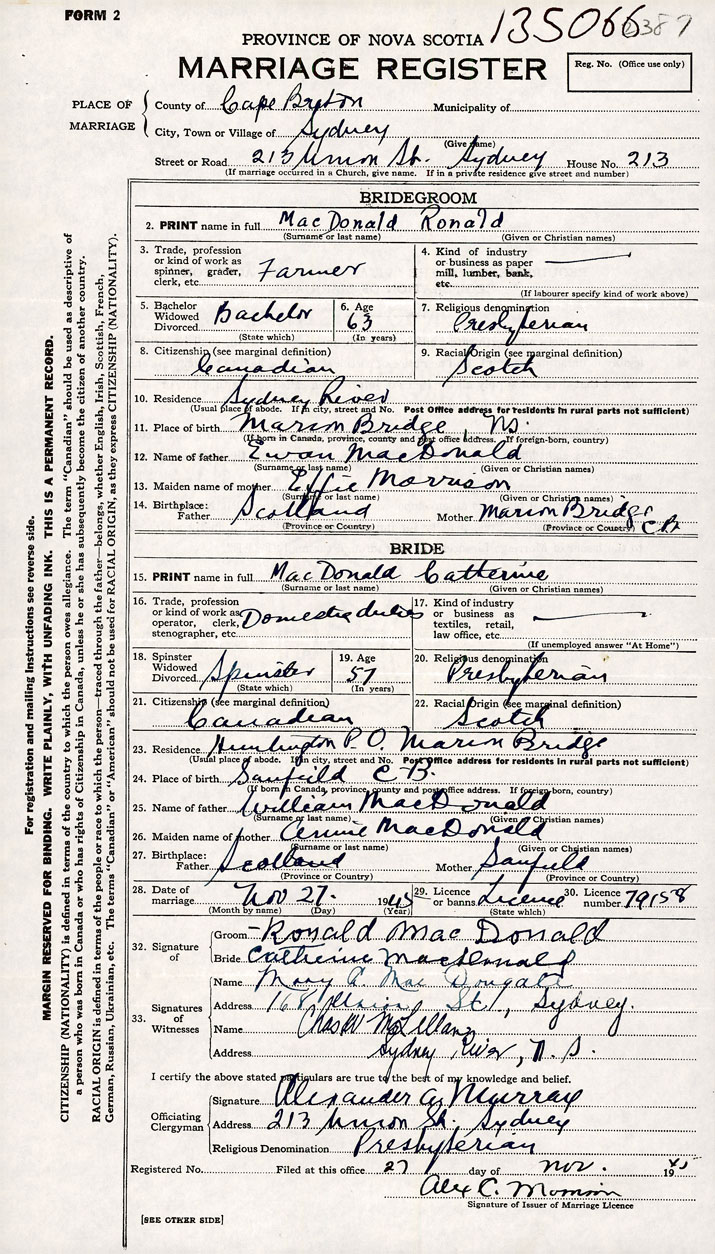 FORM 2
135066 2387
PROVINCE OF NOVA SCOTIA
MARRIAGE REGISTER
Reg. No. (Office use only)
PLACE OF MARRIAGE
County of Cape Breton Municipality of
City, Town or Village of Sydney
(Give name)
Street or Road 213 Union St. Sydney House No. 213
(If marriage occurred in a Church, give name. If in a private residence give street and number)
BRIDEGROOM
2. PRINT name in full MacDonald Ronald
(Surname or last name) (Given or Christian names)
3. Trade, profession or kind of work as spinner, grader, clerk, etc. Farmer
4. Kind of industry or business as paper mill, lumber, bank, etc.
(If labourer specify kind of work above)
5. Bachelor Widowed Divorced Bachelor
(State which)
6. Age 63
(In years)
7. Religious denomination Presbyterian
8. Citizenship (see marginal definition) Canadian
9. Racial Origin (see marginal definition) Scotch
10. Residence Sydney River
(Usual place of abode. If in city, street and No. Post Office address for residents in rural parts not sufficient)
11. Place of birth Marion Bridge, N.S.
(If born in Canada, province, county and post office address. If foreign-born, country)
12. Name of father Ewan MacDonald
(Surname or last name) (Given or Christian names)
13. Maiden name of mother Effie Morrison
(Surname or last name) (Given or Christian names)
14. Birthplace: Father Scotland Mother Marion Bridge C B
(Province or Country) (Province or Country)
BRIDE
15. PRINT name in full MacDonald Catherine
(Surname or last name) (Given or Christian names)
16. Trade, profession or kind of work as operator, clerk, stenographer, etc. Domestic duties
17. Kind of industry or business as textiles, retail, law office, etc.
(If unemployed answer "At Home")
18. Spinster Widowed Divorced Spinster
(State which)
19. Age 57
(In years)
20. Religious denomination Presbyterian
21. Citizenship (see marginal definition) Canadian
22. Racial Origin (see marginal definition) Scotch
23. Residence Huntington P.O. Marion Bridge
(Usual place of abode. If in city, street and No. Post Office address for residents in rural parts not sufficient)
24. Place of birth Sanfield C B.
(If born in Canada, province, county and post office address. If foreign-born, country)
25. Name of father William MacDonald
(Surname or last name) (Given or Christian names)
26. Maiden name of mother Annie MacDonald
(Surname or last name) (Given or Christian names)
27. Birthplace: Father Scotland Mother Sanfield
(Province or Country) (Province or Country)
28. Date of marriage Nov 27. 1945
(Month by name) (Day) (Year)
29. Licence or banns Licence
(State which)
30. Licence number 79158
32. Signature of
Groom Ronald MacDonald
Bride Catherine MacDonald
33. Signatures of Witnesses
Name Mary C. MacDougall
Address 168 Union St, Sydney.
Name Chas W McLellan
Address Sydney River, N. S.
I certify the above stated particulars are true to the best of my knowledge and belief.
Officiating Clergyman
Signature Alexander A. Murray
Address 213 Union St. Sydney
Religious Denomination Presbyterian
Registered No. Filed at this office 27 day of Nov. 1945
Alex C. Morrison
Signature of Issuer of Marriage Licence
[SEE OTHER SIDE]
For registration and mailing instructions see reverse side.
MARGIN RESERVED FOR BINDING. WRITE PLAINLY, WITH UNFADING INK. THIS IS A PERMANENT RECORD.
CITIZENSHIP (NATIONALITY) is defined in terms of the country to which the person owes allegiance. The term "Canadian" should be used as descriptive of
a person who was born in Canada or who has rights of Citizenship in Canada, unless he or she has subsequently become the citizen of another country.
RACIAL ORIGIN is defined in terms of the people or race to which the person—traced through the father—belongs, whether English, Irish, Scottish, French,
German, Russian, Ukrainian, etc. The terms "Canadian" or "American" should not be used for RACIAL ORIGIN, as they express CITIZENSHIP (NATIONALITY).